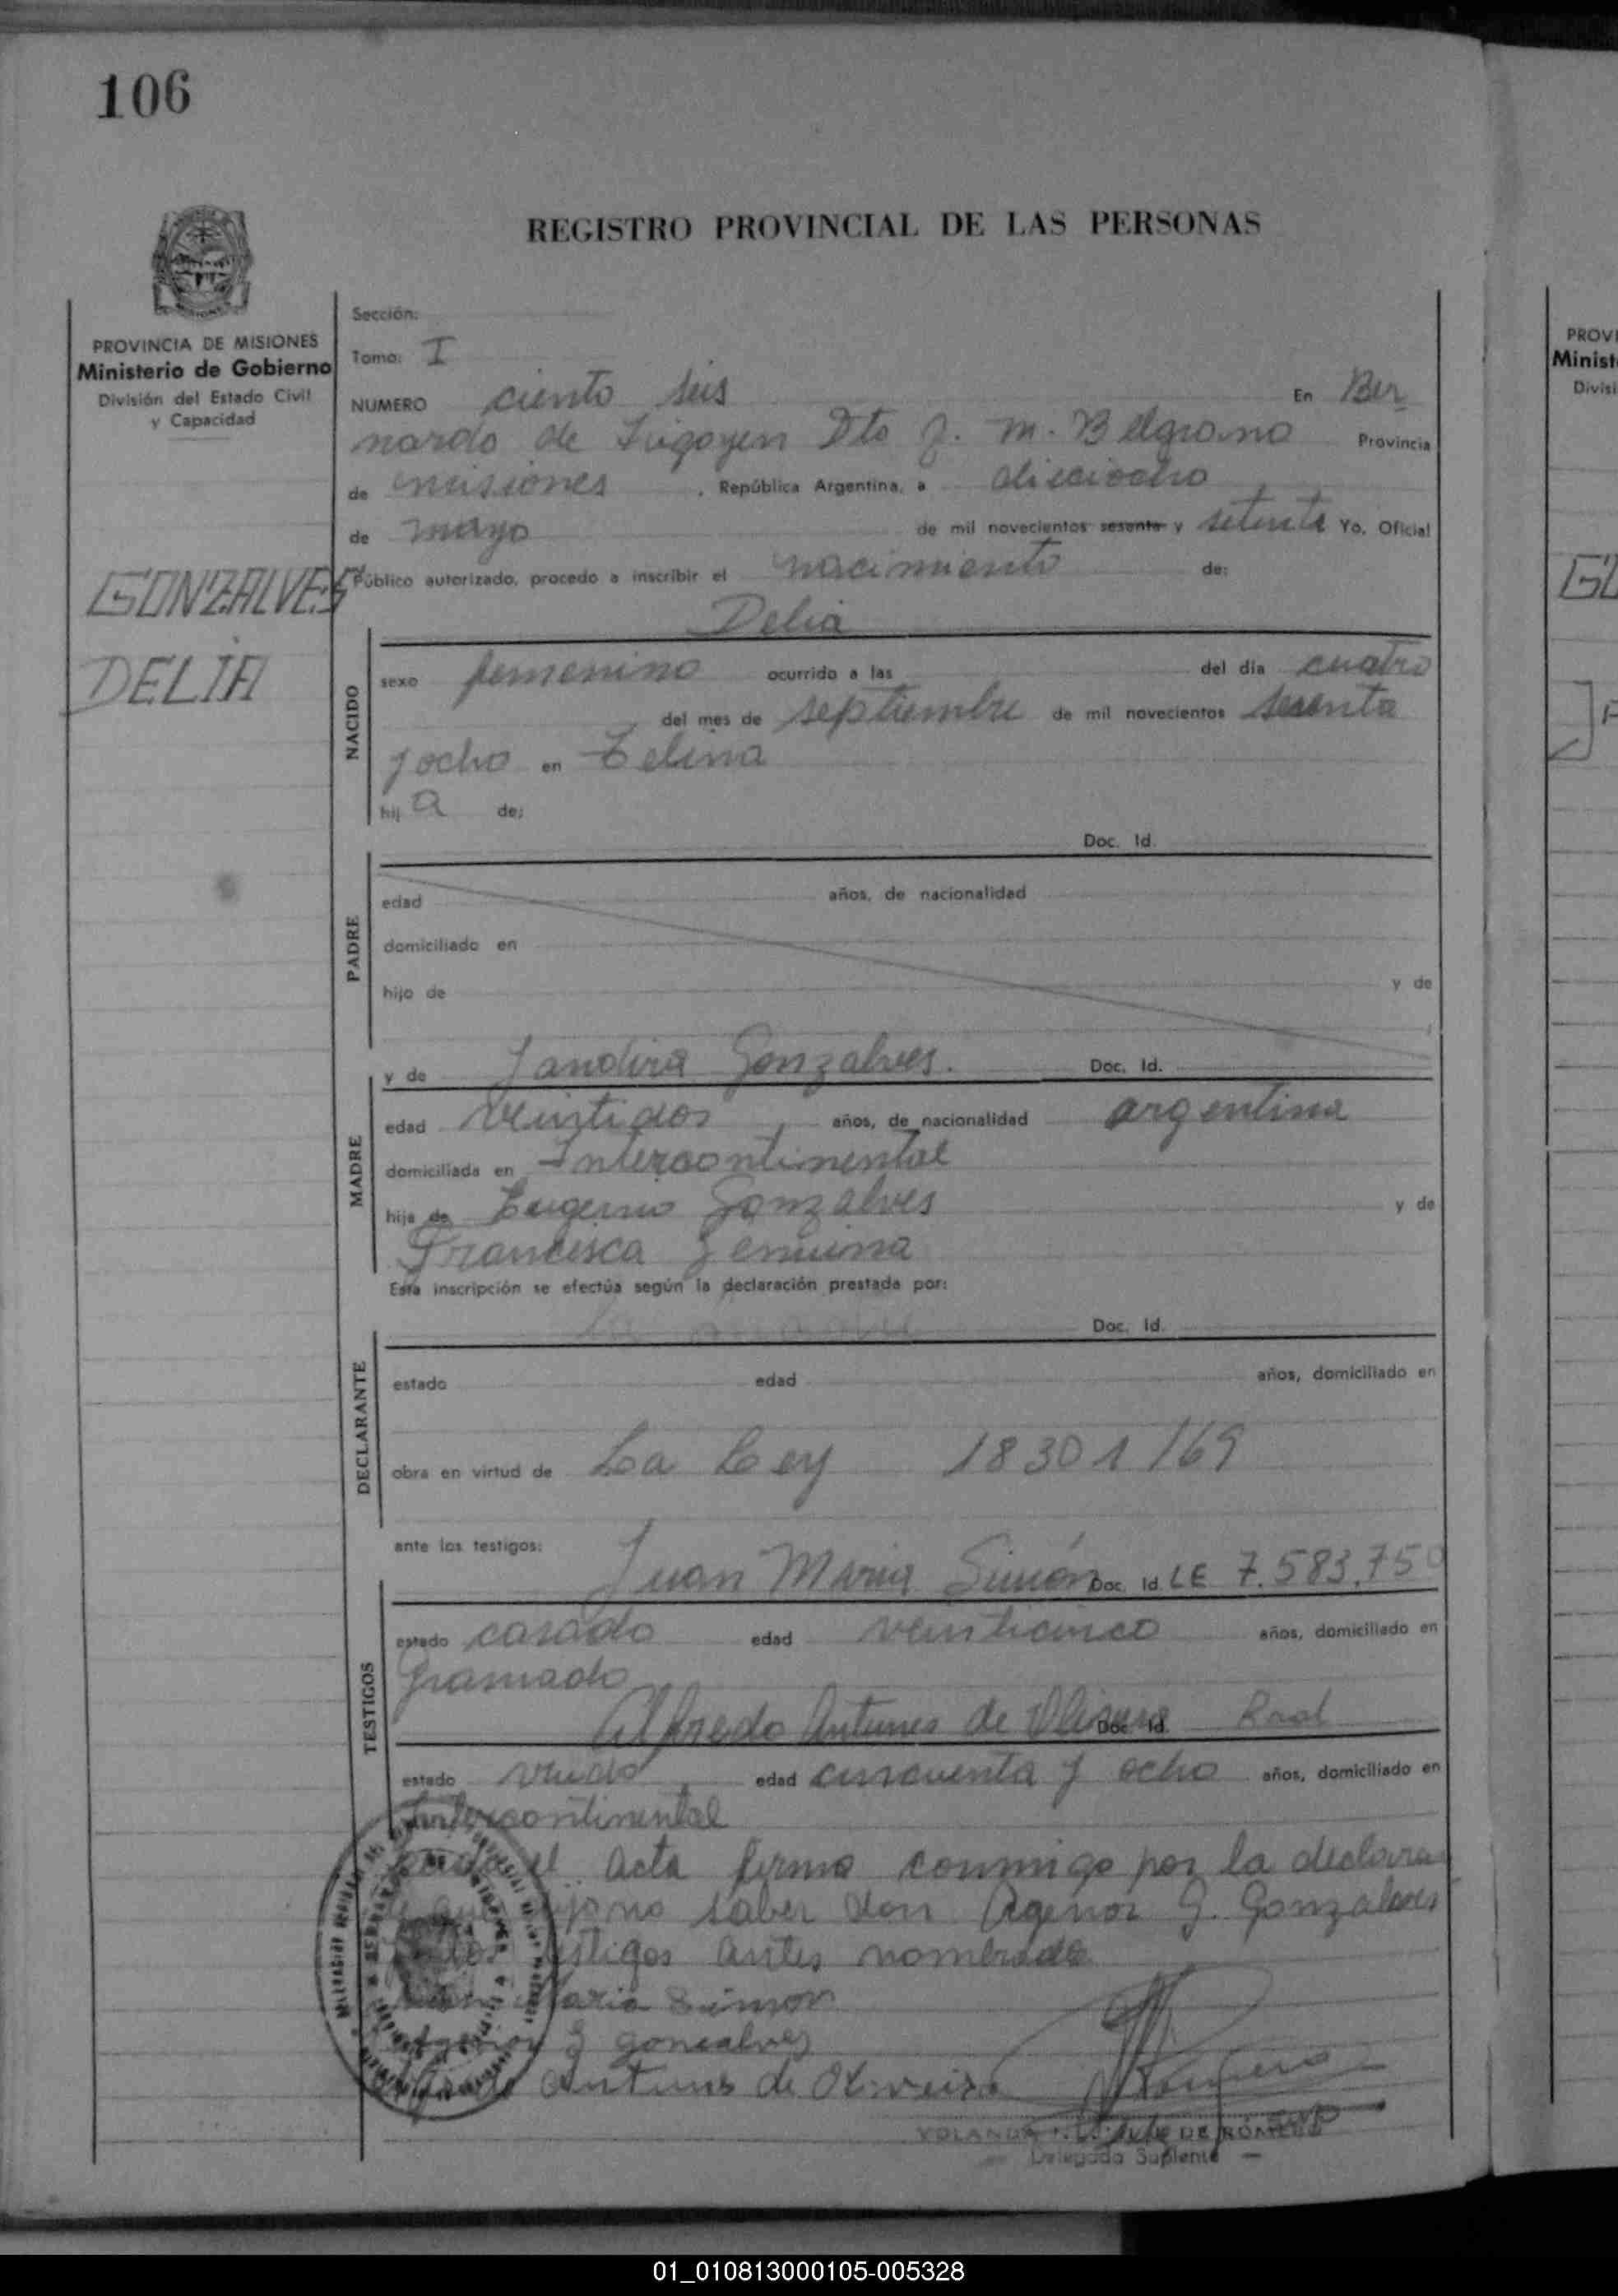 106
REGISTRO PROVINCIAL DE LAS PERSONAS
PROVINCIA DE MISIONES
Ministerio de Gobierno
División del Estado Civil
y Capacidad
GONZALVES
DELIA
Sección:
Tomo: I
NUMERO ciento seis En Ber
nardo de Irigoyen Dto G. M. Belgrano Provincia
de misiones, República Argentina, a dieciocho
de mayo de mil novecientos sesenta y setenta Yo, Oficial
Público autorizado, procedo a inscribir el nacimiento de:
Delia
NACIDO
sexo femenino ocurrido a las del día cuatro
del mes de septiembre de mil novecientos sesenta
y ocho en
hij a de:
Doc. Id.
PADRE
edad años, de nacionalidad
domiciliado en
hijo de y de
y de Jandira Gonzalves. Doc. Id.
MADRE
edad veintidos años, de nacionalidad argentina
domiciliada en Intercontinental
hija de Eugenio Gonzalves y de
Francisca
Esta inscripción se efectúa según la declaración prestada por:
la madre Doc. Id.
DECLARANTE
estado edad años, domiciliado en
obra en virtud de La Ley 18301/69
ante los testigos:
Juan Maria Simón Doc. Id. LE 7.583.750
TESTIGOS
estado casado edad veinticinco años, domiciliado en
Gramado
Alfredo Antunes de Olivera Doc. Id.
estado viudo edad cincuenta y ocho años, domiciliado en
Intercontinental
el acta firma conmigo por la declara
no saber don Agenor G. Gonzalves
testigos antes nombrados
Maria Simon
Agenor G goncalves
Antunes de Oliveira
YOLANDA DE ROMERO
Delegada Suplente
PROVI
Minist
Divisi
GO
01_010813000105-005328